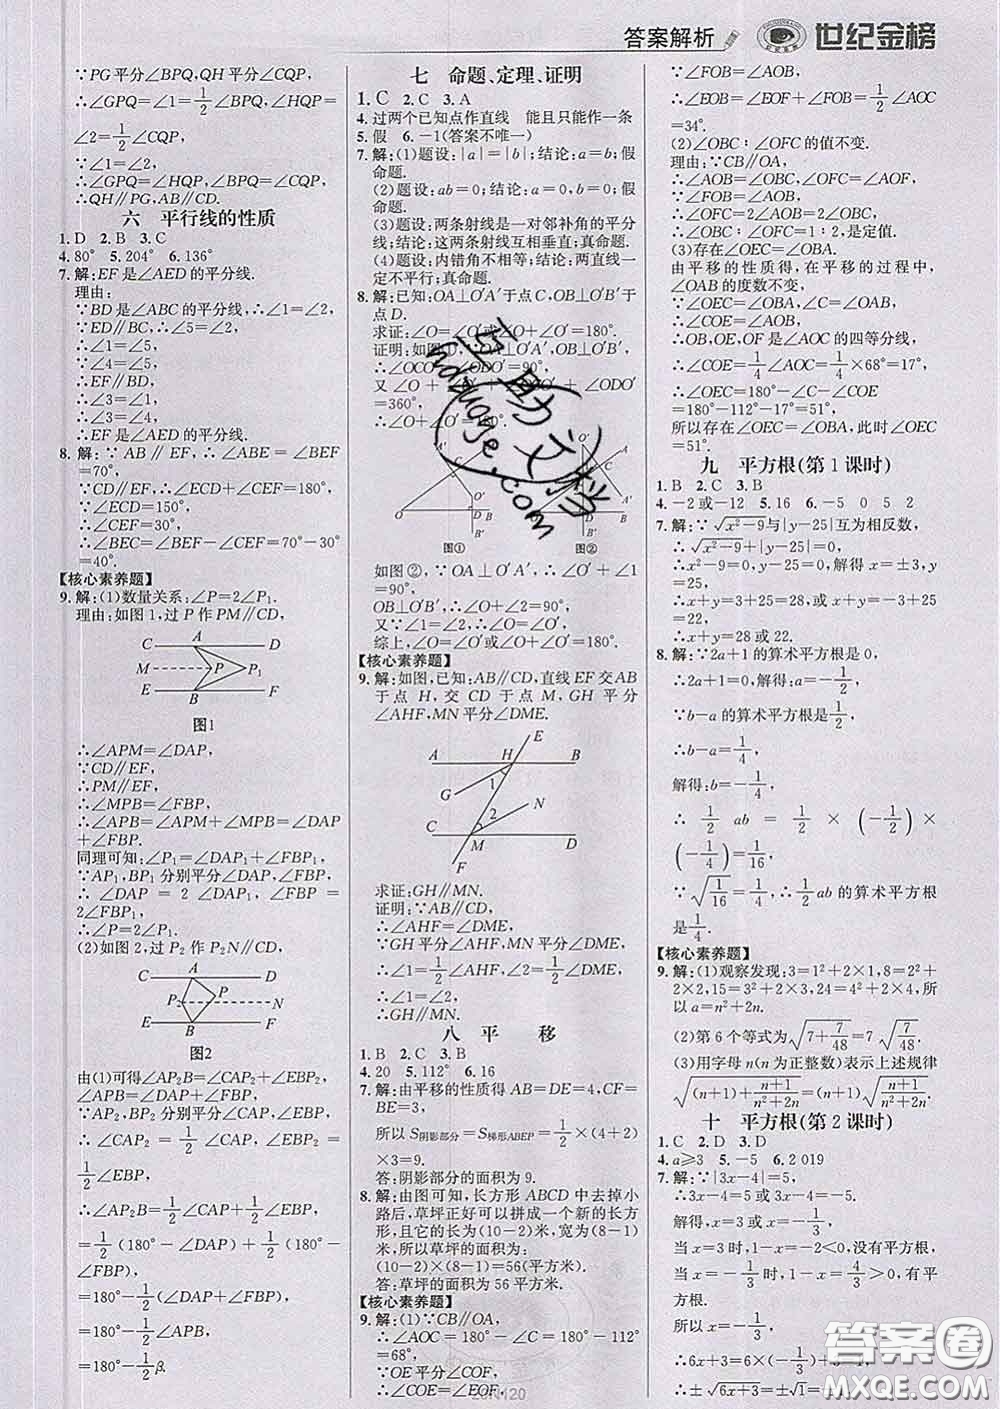 答案解析
世纪金榜
∵PG平分∠BPQ,QH平分∠CQP,
∴∠GPQ=∠1=1/2∠BPQ,∠HQP=
∠2=1/2∠CQP,
∵∠1=∠2,
∴∠GPQ=∠HQP,∠BPQ=∠CQP,
∴QH∥PG,AB∥CD.
六 平行线的性质
1.D 2.B 3.C
4.80° 5.204° 6.136°
7.解:EF是∠AED的平分线.
理由:
∵BD是∠ABC的平分线,∴∠1=∠2,
∵ED∥BC,∴∠5=∠2,
∴∠1=∠5,
∵∠4=∠5,
∴EF∥BD,
∴∠3=∠1,
∴∠3=∠4,
∴EF是∠AED的平分线.
8.解:∵AB∥EF,∴∠ABE=∠BEF
=70°,
∵CD∥EF,∴∠ECD+∠CEF=180°,
∵∠ECD=150°,
∴∠CEF=30°,
∴∠BEC=∠BEF-∠CEF=70°-30°
=40°.
【核心素养题】
9.解:(1)数量关系:∠P=2∠P₁.
理由:如图1,过P作PM∥CD,
C A D
M P P₁
E B F
图1
∴∠APM=∠DAP,
∵CD∥EF,
∴PM∥EF,
∴∠MPB=∠FBP,
∴∠APB=∠APM+∠MPB=∠DAP
+∠FBP.
同理可知:∠P₁=∠DAP₁+∠FBP₁,
∵AP₁,BP₁分别平分∠DAP,∠FBP,
∴∠DAP=2∠DAP₁,∠FBP=
2∠FBP₁,
∴∠P=2∠P₁.
(2)如图2,过P₂作P₂N∥CD,
C A D
P₂ P N
E B F
图2
由(1)可得∠AP₂B=∠CAP₂+∠EBP₂,
∠APB=∠DAP+∠FBP,
∵AP₂,BP₂分别平分∠CAP,∠EBP,
∴∠CAP₂=1/2∠CAP,∠EBP₂=
1/2∠EBP,
∴∠AP₂B=1/2∠CAP+1/2∠EBP,
=1/2(180°-∠DAP)+1/2(180°-
∠FBP),
=180°-1/2(∠DAP+∠FBP),
=180°-1/2∠APB,
=180°-1/2β.
七 命题、定理、证明
1.C 2.C 3.A
4.过两个已知点作直线 能且只能作一条
5.假 6.-1(答案不唯一)
7.解:(1)题设:|a|=|b|;结论:a=b;假
命题.
(2)题设:ab=0;结论:a=0,b=0;假
命题.
(3)题设:两条射线是一对邻补角的平分
线;结论:这两条射线互相垂直;真命题.
(4)题设:内错角不相等;结论:两直线一
定不平行;真命题.
8.解:已知:OA⊥O′A′于点C,OB⊥O′B′于
点D.
求证:∠O=∠O′或∠O+∠O′=180°.
证明:如图①,∵OA⊥O′A′,OB⊥O′B′,
∴∠OCO′=∠ODO′=90°,
又∠O+∠O′+∠OCO′+∠ODO′
=360°,
∴∠O+∠O′=180°.
图① 图②
如图②,∵OA⊥O′A′,∴∠O′+∠1
=90°,
OB⊥O′B′,∴∠O+∠2=90°,
又∵∠1=∠2,∴∠O=∠O′,
综上,∠O=∠O′或∠O+∠O′=180°.
【核心素养题】
9.解:如图,已知:AB∥CD,直线EF交AB
于点H,交CD于点M,GH平分
∠AHF,MN平分∠DME.
E
A H B
1
G N
2
C M D
F
求证:GH∥MN.
证明:∵AB∥CD,
∴∠AHF=∠DME,
∵GH平分∠AHF,MN平分∠DME,
∴∠1=1/2∠AHF,∠2=1/2∠DME,
∴∠1=∠2,
∴GH∥MN.
八 平 移
1.B 2.C 3.B
4.20 5.112° 6.16
7.解:由平移的性质得AB=DE=4,CF=
BE=3,
所以S阴影部分=S梯形ABEP=1/2×(4+2)
×3=9.
答:阴影部分的面积为9.
8.解:由图可知,长方形ABCD中去掉小
路后,草坪正好可以拼成一个新的长方
形,且它的长为(10-2)米,宽为(8-1)
米,所以草坪的面积为:
(10-2)×(8-1)=56(平方米).
答:草坪的面积为56平方米.
【核心素养题】
9.解:(1)∵CB∥OA,
∴∠AOC=180°-∠C=180°-112°
=68°,
∵OE平分∠COF,
∴∠COE=∠EOF,
∵∠FOB=∠AOB,
∴∠EOB=∠EOF+∠FOB=1/2∠AOC
=34°.
(2)∠OBC∶∠OFC的值不变.
理由:∵CB∥OA,
∴∠AOB=∠OBC,∠OFC=∠AOF,
∵∠FOB=∠AOB,∴∠AOF=2∠AOB,
∴∠OFC=2∠OBC,
∴∠OBC∶∠OFC=1∶2,是定值.
(3)存在∠OEC=∠OBA.
由平移的性质得,在平移的过程中,
∠OAB的度数不变.
∵∠OEC=∠OBA,∠C=∠OAB,
∴∠COE=∠AOB,
∴OB,OE,OF是∠AOC的四等分线,
∴∠COE=1/4∠AOC=1/4×68°=17°,
∴∠OEC=180°-∠C-∠COE=
180°-112°-17°=51°,
所以存在∠OEC=∠OBA,此时∠OEC
=51°.
九 平方根(第1课时)
1.B 2.C 3.B
4.-2或-12 5.16 6.-5 0 5 2
7.解:∵√(x²-9)与|y-25|互为相反数,
∴√(x²-9)+|y-25|=0,
∴x²-9=0,y-25=0,解得:x=±3,y=
25,
∴x+y=3+25=28或x+y=-3+25=
22,
∴x+y=28或22.
8.解:∵2a+1的算术平方根是0,
∴2a+1=0,解得:a=-1/2,
∵b-a的算术平方根是1/2,
∴b-a=1/4,
解得:b=-1/4,
∴1/2ab=1/2×(-1/2)×
(-1/4)=1/16,
∵√(1/16)=1/4,∴1/2ab的算术平方根
是1/4.
【核心素养题】
9.解:(1)观察发现:3=1²+2×1,8=2²+
2×2,15=3²+2×3,24=4²+2×4,所
以a=n²+2n.
(2)第6个等式为√(7+7/48)=7√(7/48).
(3)用字母n(n为正整数)表示上述规律
√((n+1)+(n+1)/(n²+2n))=(n+1)√((n+1)/(n²+2n)).
十 平方根(第2课时)
1.C 2.D 3.D
4.a≥3 5.-5 6.2 019
7.解:∵|3x-4|=5,
∴3x-4=5或3x-4=-5.
解得,x=3或x=-1/3,
当x=3时,1-x=-2<0,没有平方根,
当x=-1/3时,1-x=4/3>0,有平
方根.
所以x=-1/3,
∴6x+3=-1/3×6+3=1,
∴±√(6x+3)=±√1=±1.
120
互助文档
hdzuoye.com
答案圈
MXQE.COM